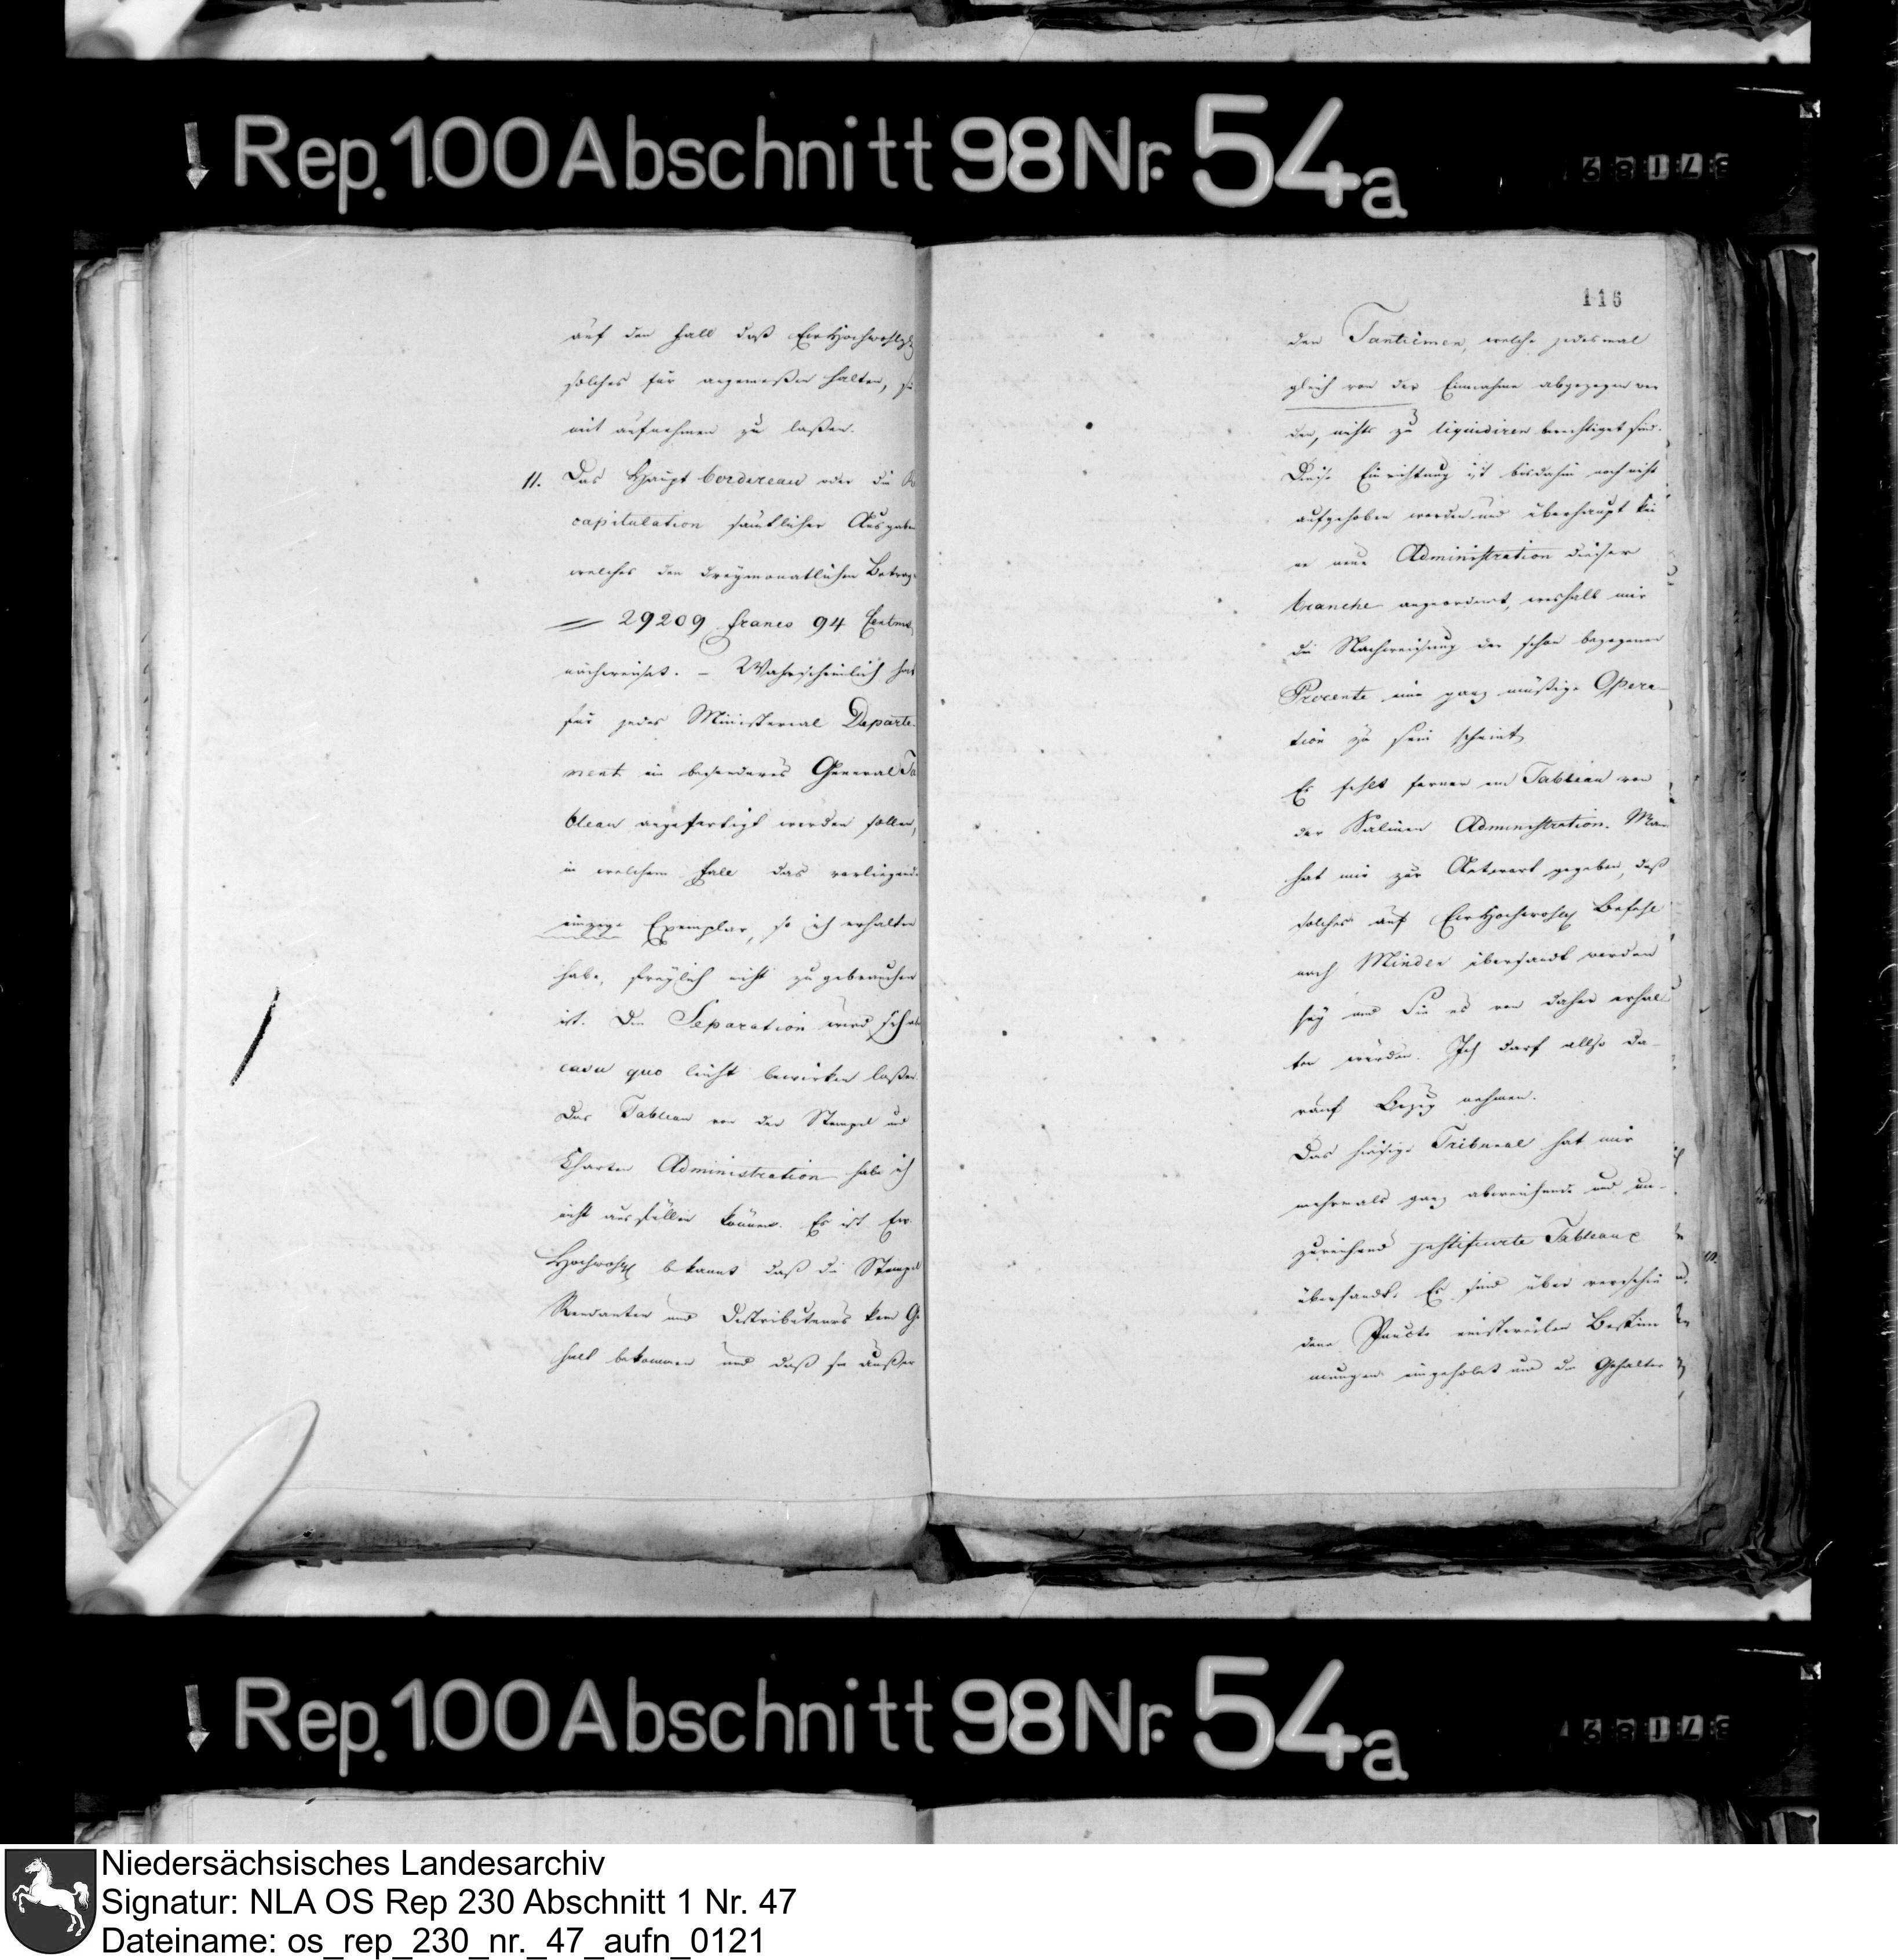 Rep. 100 Abschnitt 98 Nr. 54a
auf den Fall daß Ew Hochwohlgb
solches für angemeßen halten, sie
mit aufnehmen zu laßen.
11. Das Haupt bordereau oder die Re
capitulation sämtlicher Ausgaben
welches den dreymonatlichen Betrag
= 29209 francs 94 Centm
nachweiset. – Wahrscheinlich hat
für jedes Ministerial Departe-
ment ein besonderes General Ta
bleau angefertigt werden sollen,
in welchem Fall das vorliegende
einzige Exemplar, so ich erhalten
habe, freylich nicht zu gebrauchen
ist. Die Separation wird sich
casu quo leicht bewirken laßen.
Das Tableau von der Stempel und
Charten Administration habe ich
nicht ausfüllen können. Es ist Ew.
Hochwohlg bekannt daß die Stempel
Rendanten und Distributeurs kein Ge
halt bekommen und daß sie außer
116
den Tantiemen, welche jedesmal
gleich von der Einnahme abgezogen wer
den, nichts zu liquidiren berechtiget sind.
Diese Einrichtung ist bisdahin noch nicht
aufgehoben worden und überhaupt kei
ne neue Administration dieser
branche angeordnet, weshalb mir
die Nachweisung der schon bezogenen
Procente eine ganz müßige Opera-
tion zu sein scheint.
Es fehlt ferner ein Tableau von
der Salinen Administration. Man
hat mir zur Antwort gegeben, daß
solches auf Ew Hochwohlg Befehl
nach Minden übersandt worden
sey und Sie es von daher erhal
ten würden. Ich darf allso da-
rauf Bezug nehmen.
Das hiesige Tribunal hat mir
mehrmals ganz abweichende und un-
zureichend justificirte Tableaux
übersandt. Es sind über verschie
dene Puncte einstweilen Bestim
mungen eingeholet und die Gehalter
Rep. 100 Abschnitt 98 Nr. 54a
Niedersächsisches Landesarchiv
Signatur: NLA OS Rep 230 Abschnitt 1 Nr. 47
Dateiname: os_rep_230_nr._47_aufn_0121